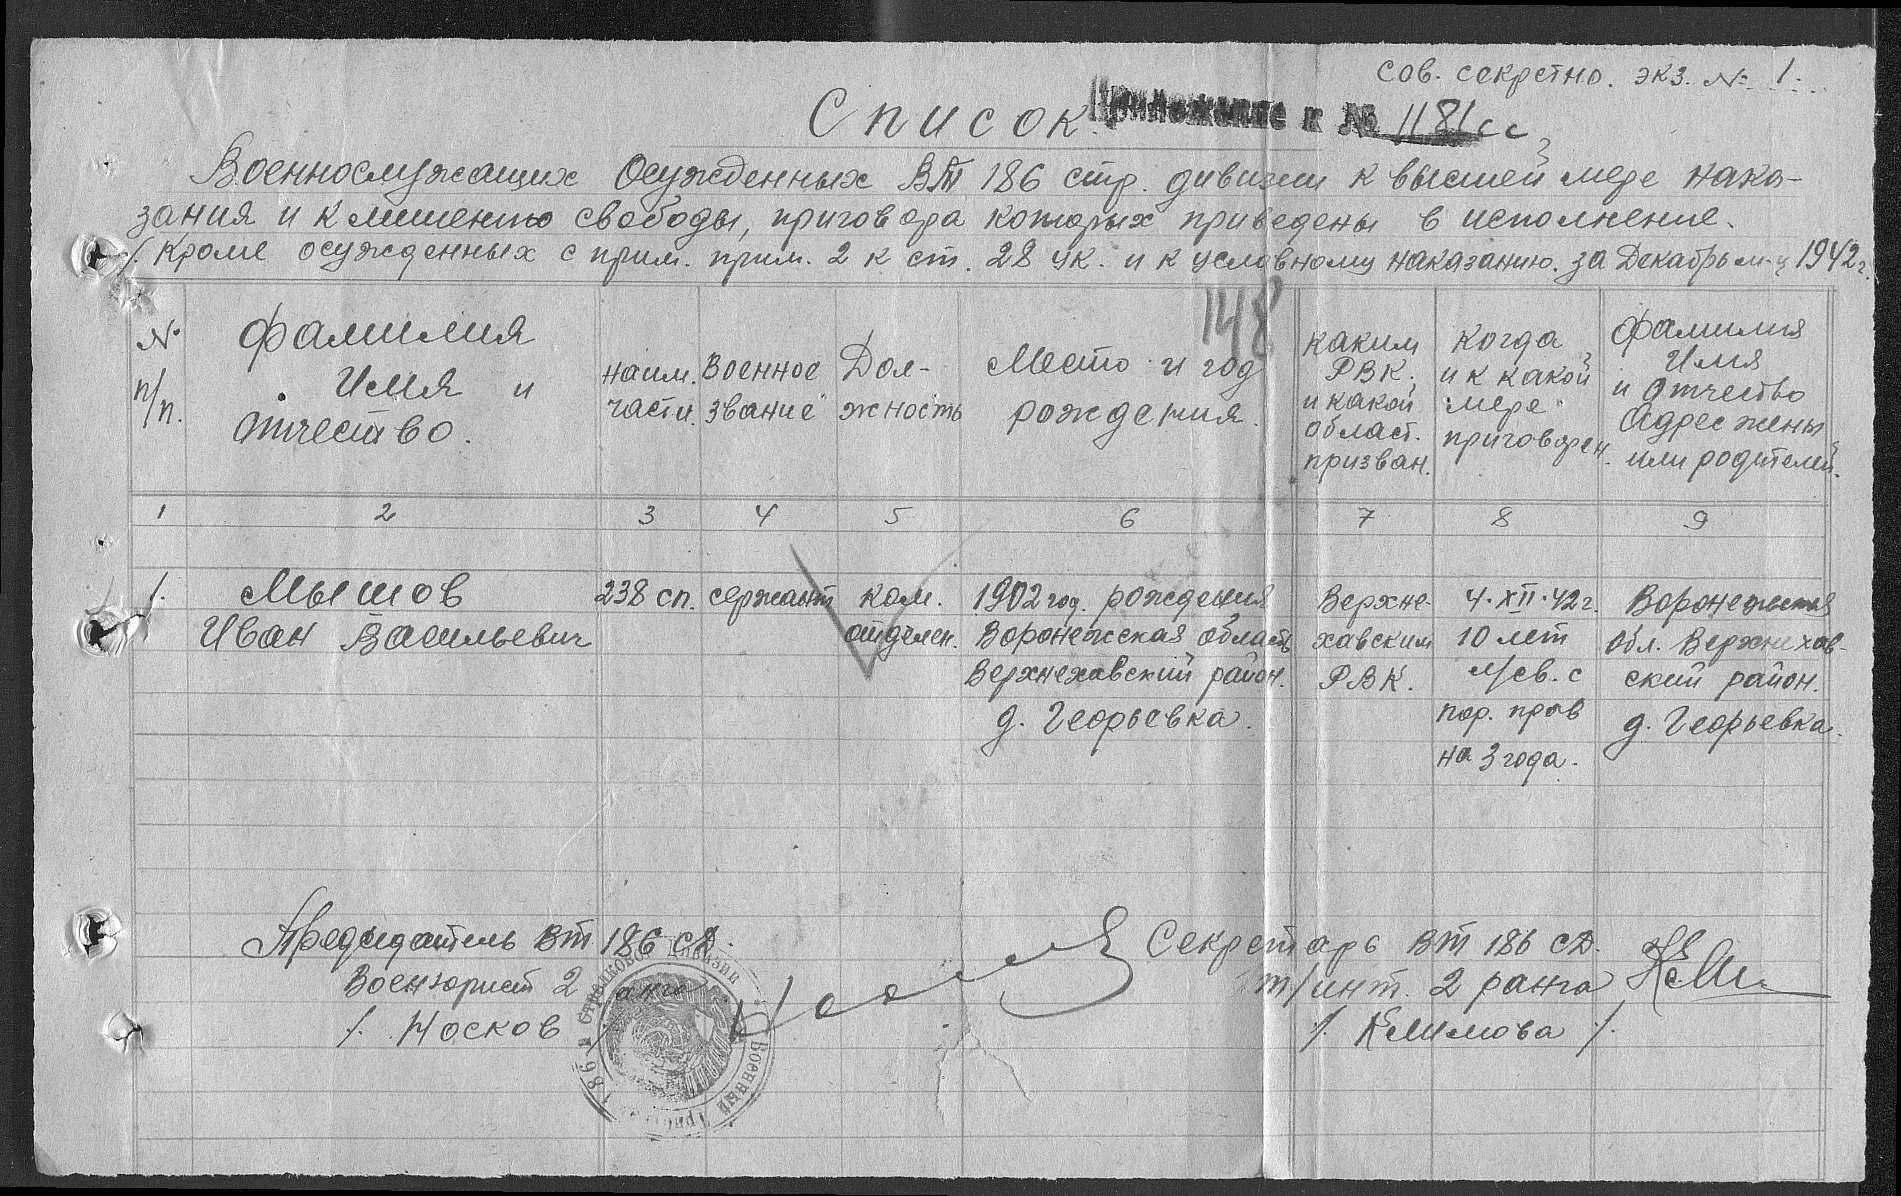 сов. секретно. экз. № 1.
Список. Приложение к № 1181сс
Военнослужащих Осужденных ВТ 186 стр. дивизии к высшей мере нака-
зания и к лишению свободы, приговора которых приведены в исполнение.
/. Кроме осужденных с прим. прим. 2 к ст. 28 ук. и к условному наказанию. за Декабрь м-ц 1942г.
148
№ п/п.
Фамилия Имя и Отчество.
наим. части.
Военное звание
Дол-жность
Место и год рождения.
каким РВК, и какой област. призван.
когда и к какой мере приговорен.
Фамилия Имя и Отчество Адрес жены или родителей.
1 2 3 4 5 6 7 8 9
1. Мышов 238 сп. сержант ком. 1902 год. рождения Верхне- 4.XII.42г. Воронежская
Иван Васильевич отделен. Воронежская область хавским 10 лет обл. Верхнехав-
Верхнехавский район. РВК. л/св. с ский район.
д. Георьевка. пор. прав д. Георьевка.
на 3 года.
Председатель ВТ 186 сД. Секретарь ВТ 186 сД.
Военюрист 2 ранга т/инт. 2 ранга
/. Носков /. Климова /.
186 й Стрелковой Дивизии Военный